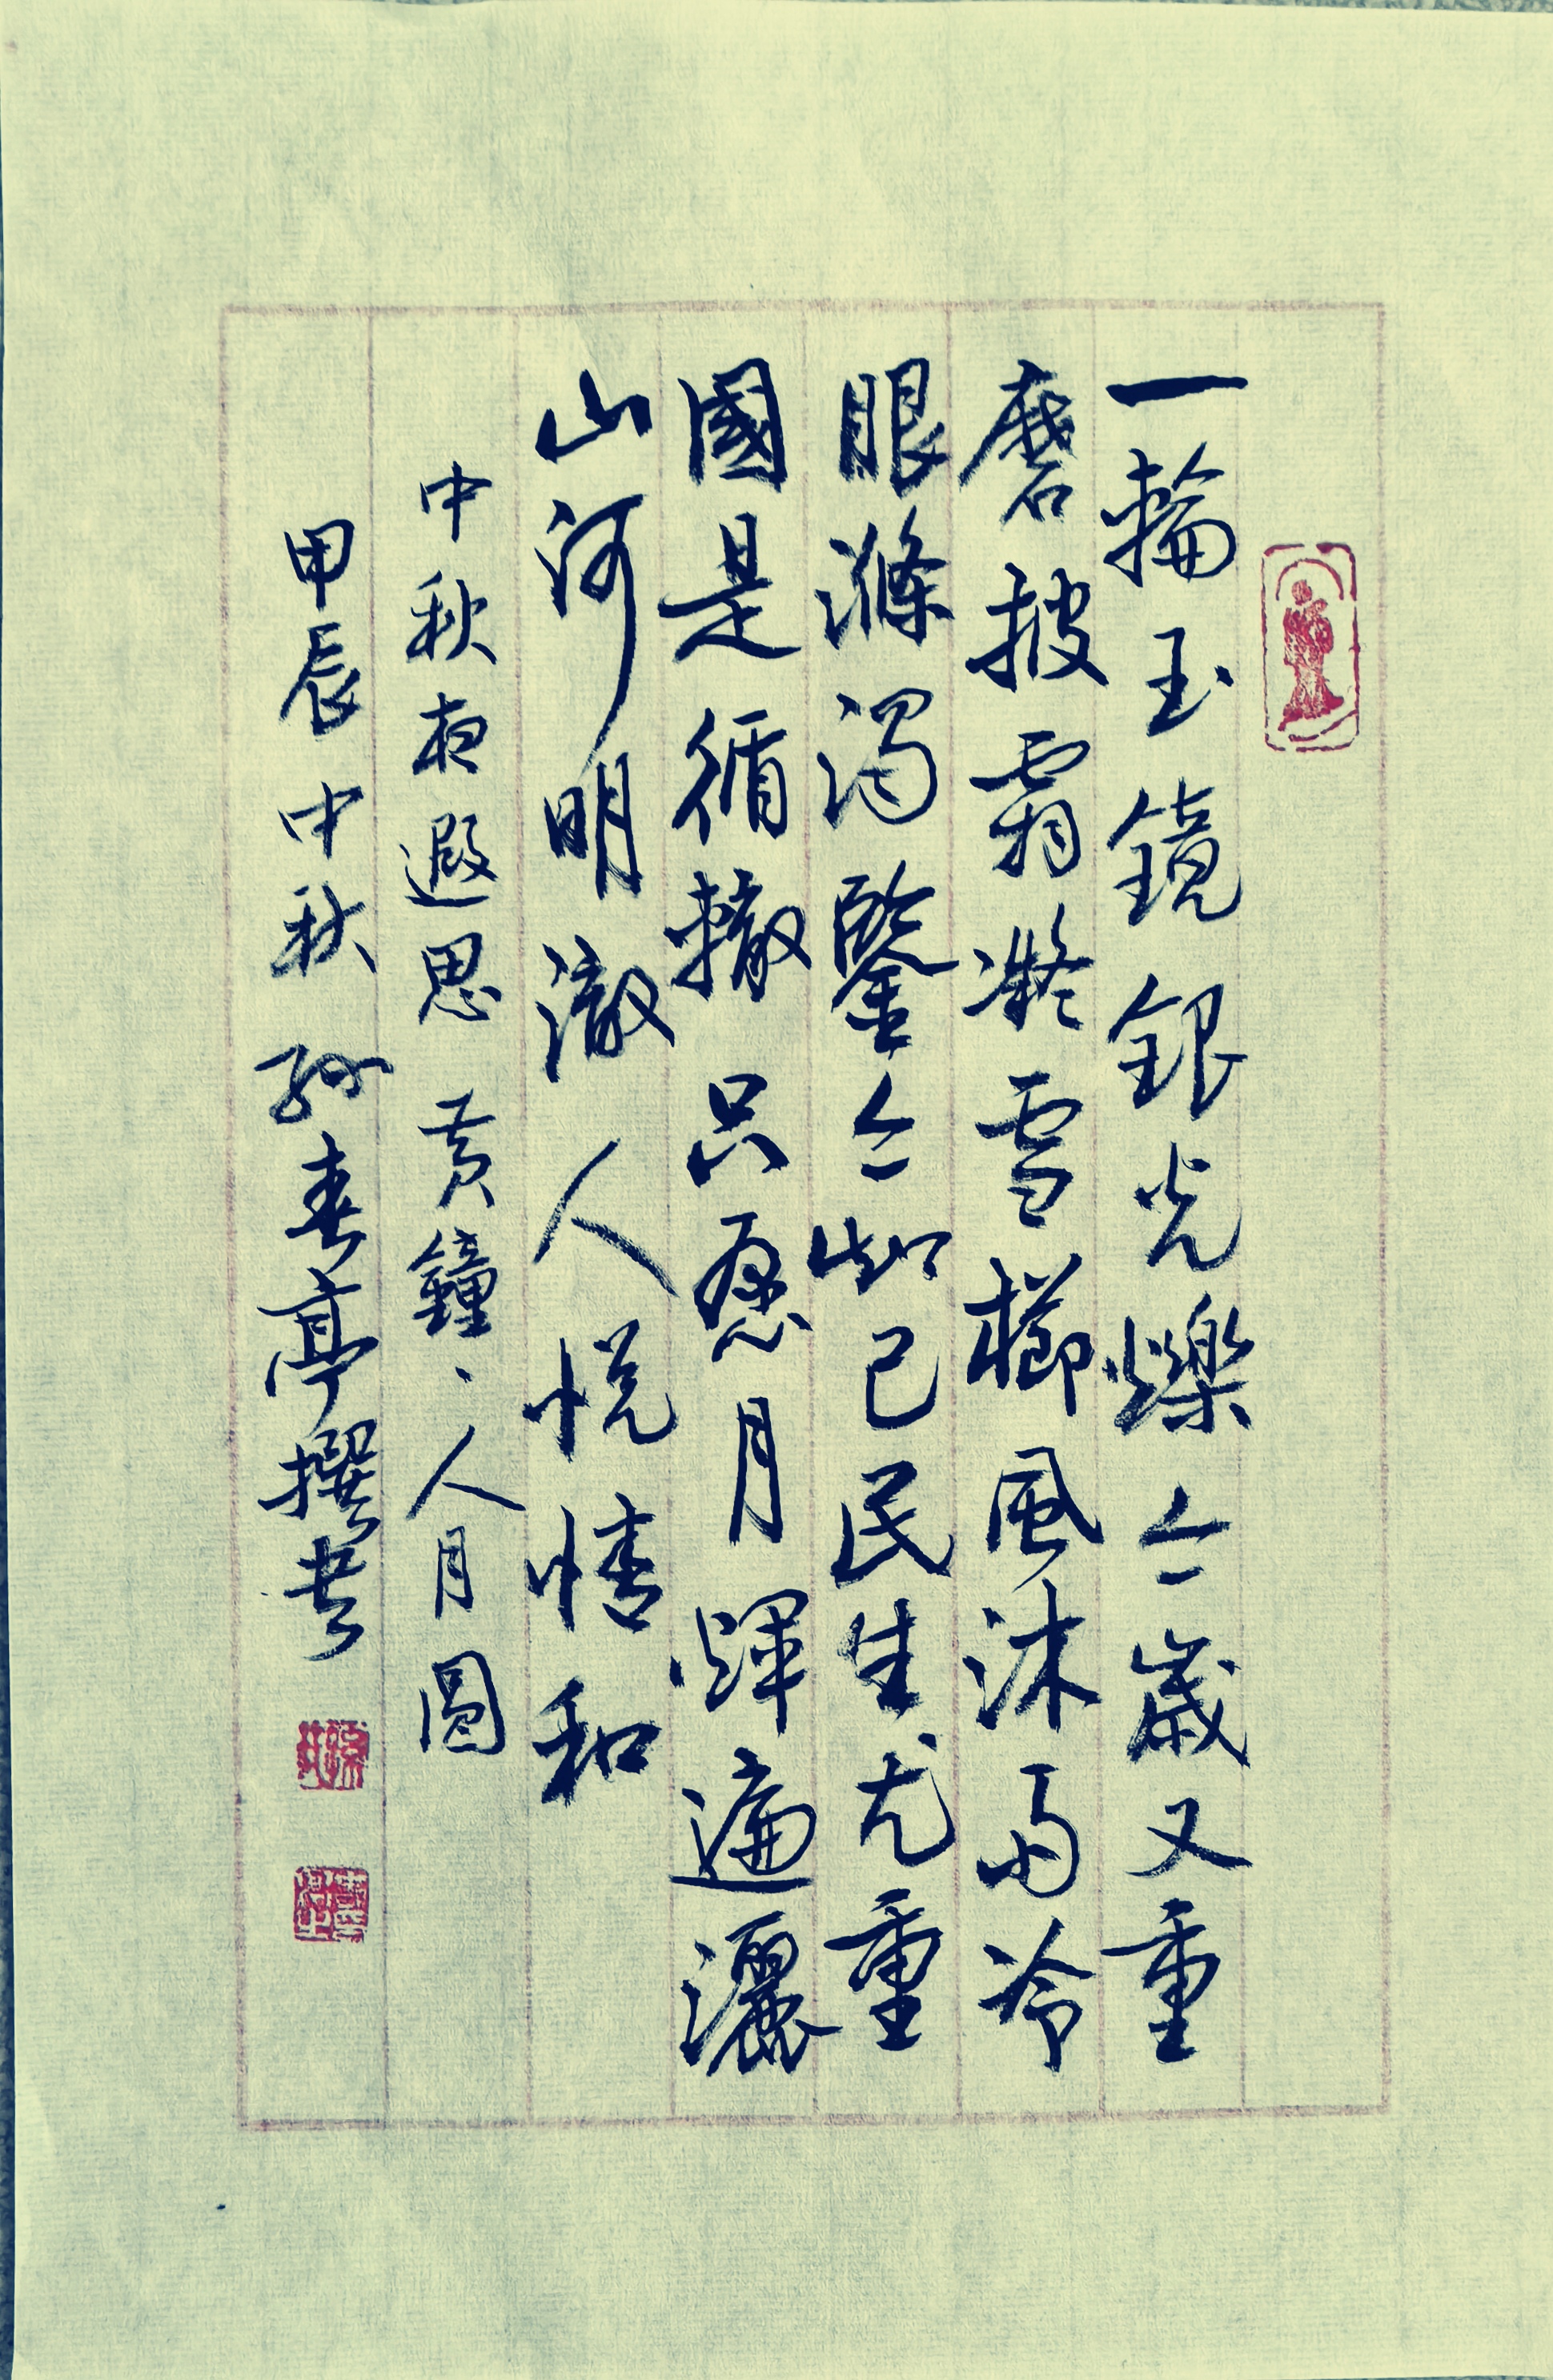 一輪玉鏡銀光爍亼歲又重
磨披霜凝雪櫛風沐雨冷
眼滌濁鑒亼知己民生尤重
國是循轍只愿月輝遍灑
山河明澈人悦情和
中秋夜遐思 黄鐘、人月圓
甲辰中秋 孙春亭撰书